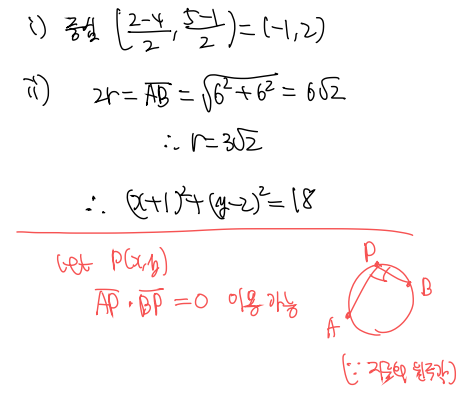 i) 중심 (2-4/2, 5-1/2) = (-1, 2)
ii) 2r = AB = √6²+6² = 6√2
∴ r = 3√2
∴ (x+1)²+(y-2)² = 18
let P(x,y)
AP · BP = 0 이용 가능
P
B
A
(∵ 지름의 원주각)